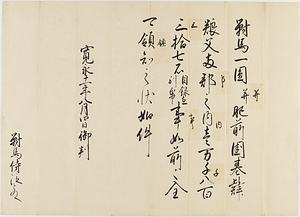 對馬一圓并肥前國基肄
養父両郡之内壱万千八百
三拾七石目録在別紙事如前之全
可領知之状如件
寛永十一年八月四日御判
對馬侍従とのへ